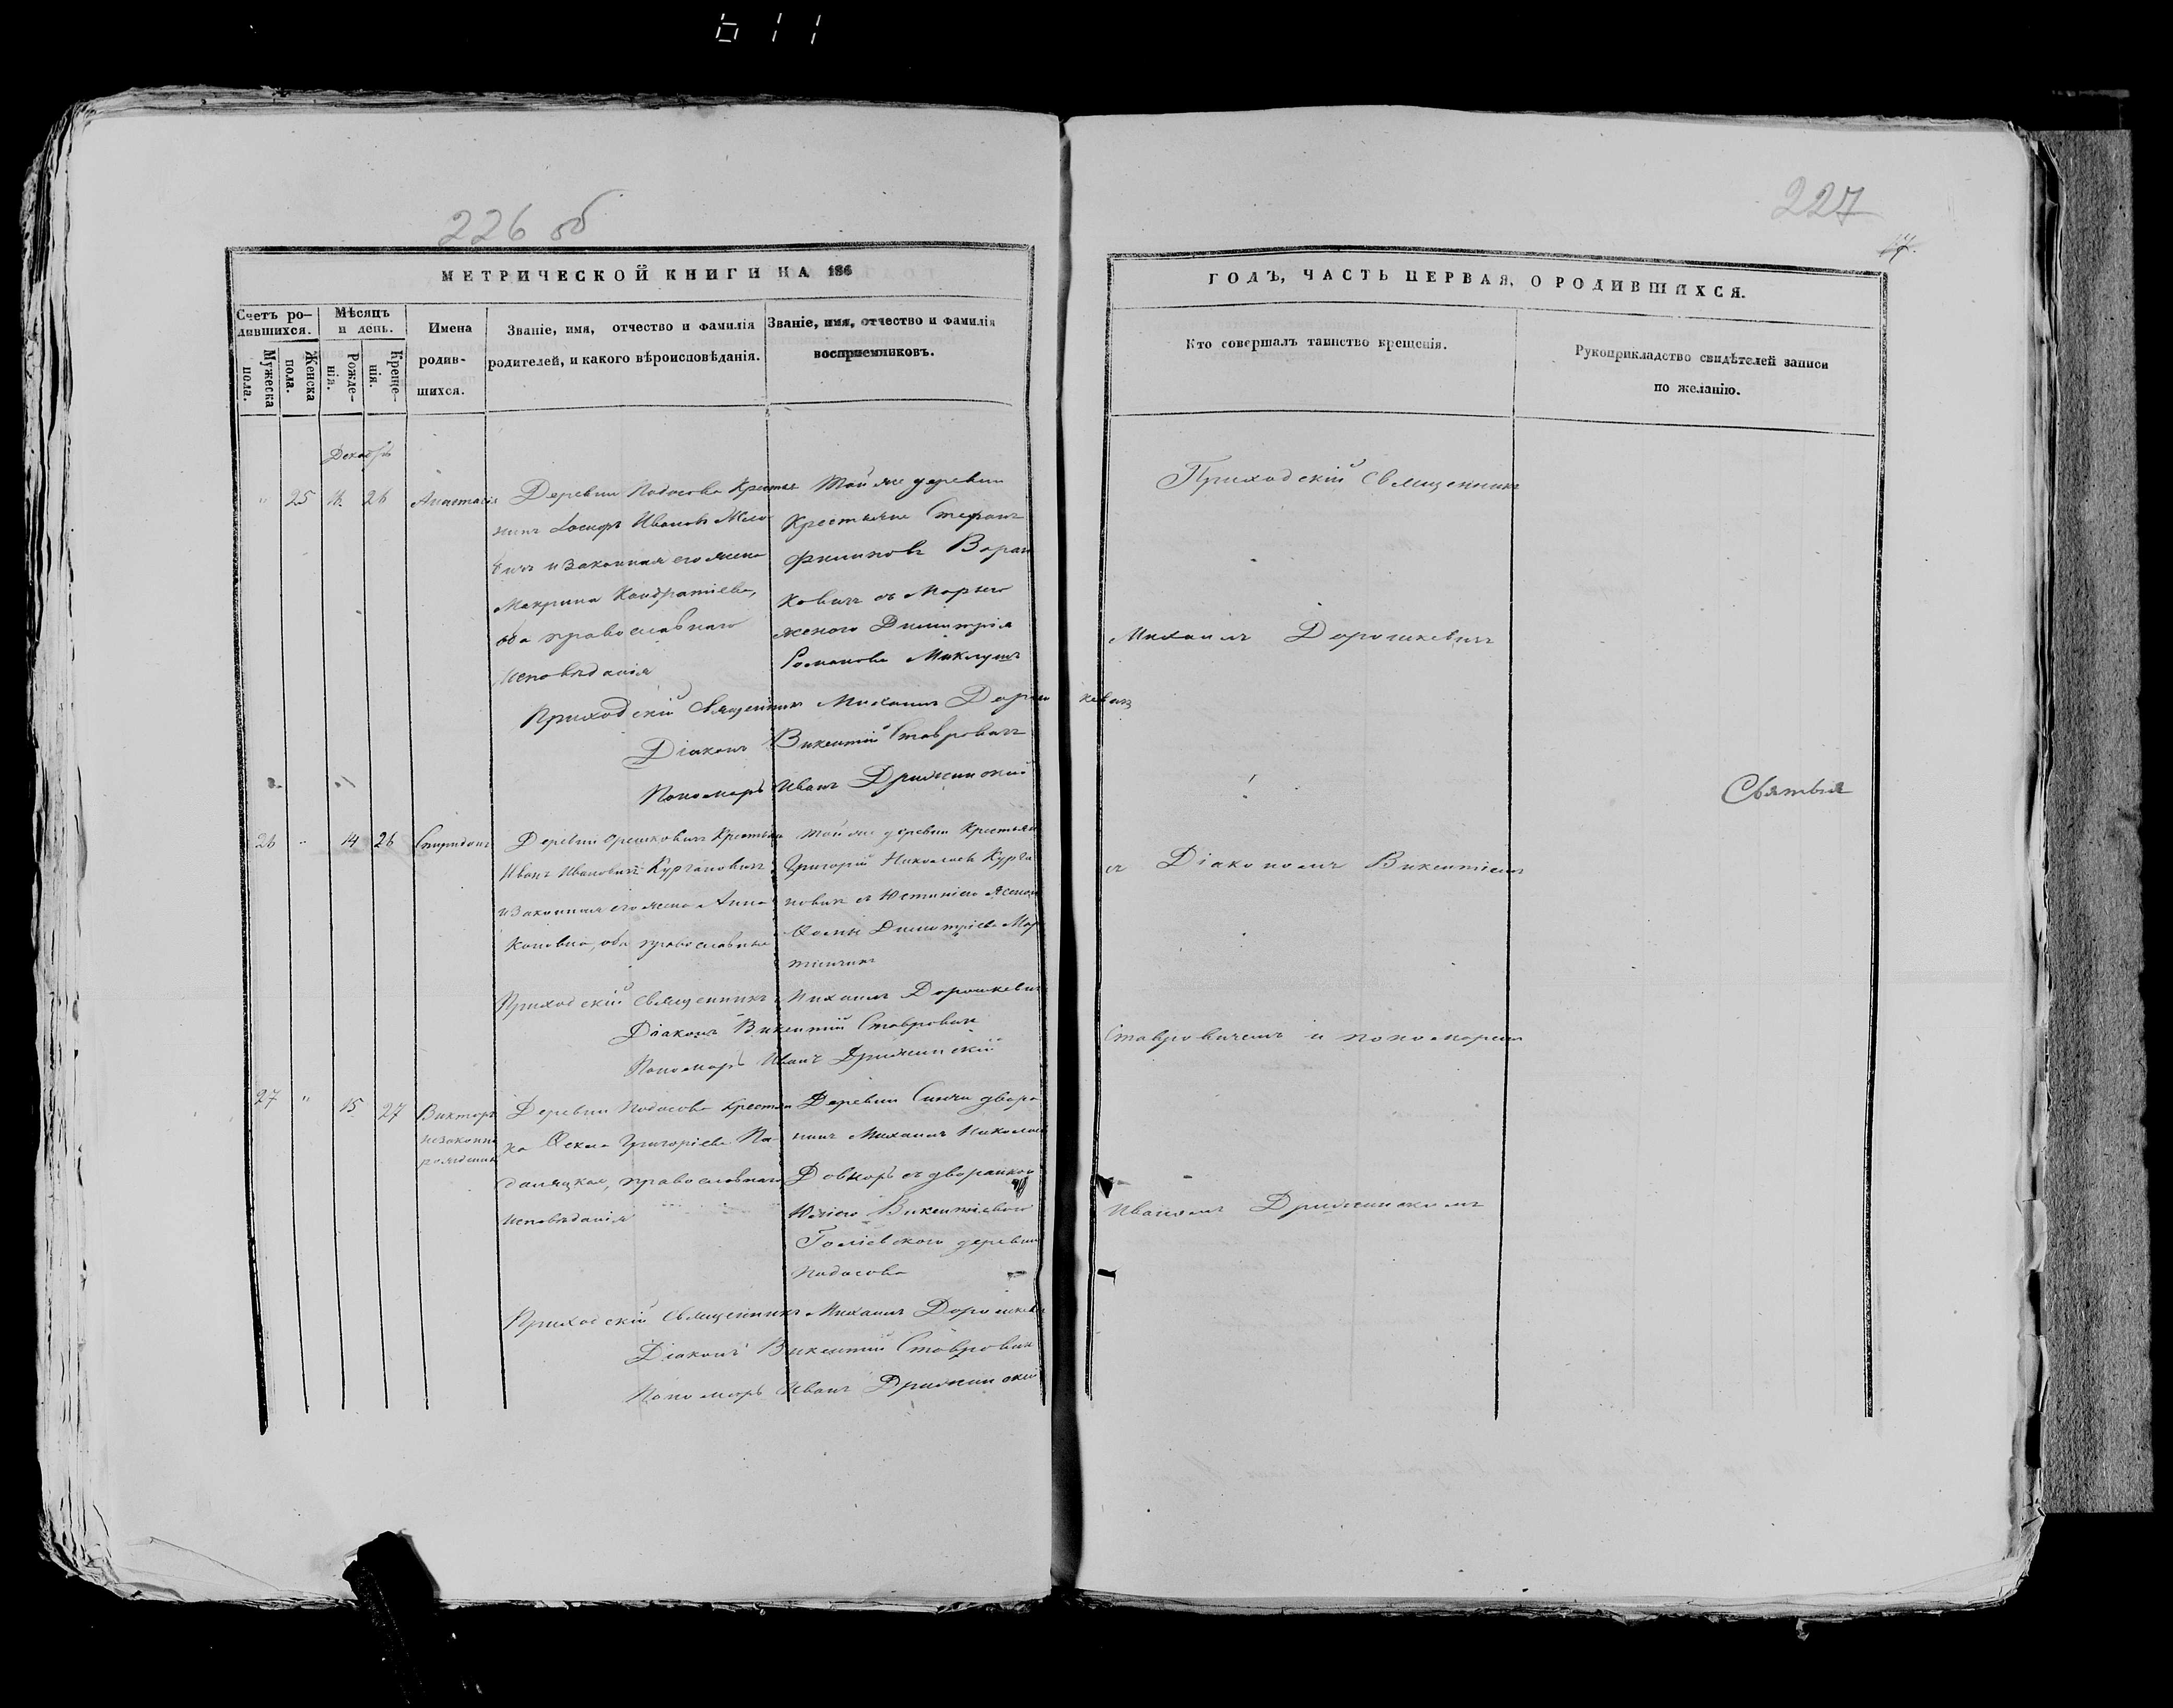 226 об
МЕТРИЧЕСКОЙ КНИГИ НА 186
Счетъ ро-
дившихся.
Мѣсяцъ
и день.
Имена
родив-
шихся.
Званіе, имя, отчество и фамилія
родителей, и какого вѣроисповѣданія.
Званіе, имя, отчество и фамилія
восприемниковъ.
Мужеска
пола.
Женска
пола.
Рожде-
нія.
Креще-
нія.
Декабрь
" 25 26 Анастасія
Деревни Подосова Крестья
нинъ Іосифъ Ивановъ
и законная его жена
Макрина Кондратіева,
оба православнаго
исповѣданія
Той же деревни
Крестьяне Стефанъ
Филиповъ Воран
ковичъ съ
женою Димитрія
Романова Миклушъ
Приходскій Священникъ Михаилъ Дорош кевичъ
Діаконъ Викентій Ставровичъ
Пономарь Иванъ
26 " 14 26 Спиридонъ
Деревни Орешковичъ Крестьяне
Иванъ Ивановичъ Кургановичъ
и законная его жена Анна
оба православные
Той же деревни Крестьяне
Григорій Николаевъ Курга
новичъ съ Юстиніею женою
Ѳомы Димитріева Мар
Приходскій Священникъ Михаилъ Дорошкевичъ
Діаконъ Викентій Ставровичъ
Пономарь Иванъ
27 " 15 27 Викторъ
незаконно
рожденный
Деревни Подосова Крестьян
ка Ѳекла Григоріева По-
православнаго
исповѣданія
Деревни дворя
нинъ Михаилъ Николаевъ
Довнаръ съ дворянкою
Юліею Викентіевою
деревни
Подосова
Приходскій Священникъ Михаилъ Дорошкевичъ
Діаконъ Викентій Ставровичъ
Пономарь Иванъ
227
ГОДЪ, ЧАСТЬ ПЕРВАЯ, О РОДИВШИХСЯ.
Кто совершалъ таинство крещенія.
Рукоприкладство свидѣтелей записи
по желанію.
Приходскій Священникъ
Михаилъ Дорошкевичъ
съ Діакономъ Викентіемъ
Ставровичемъ и пономаремъ
Иваномъ